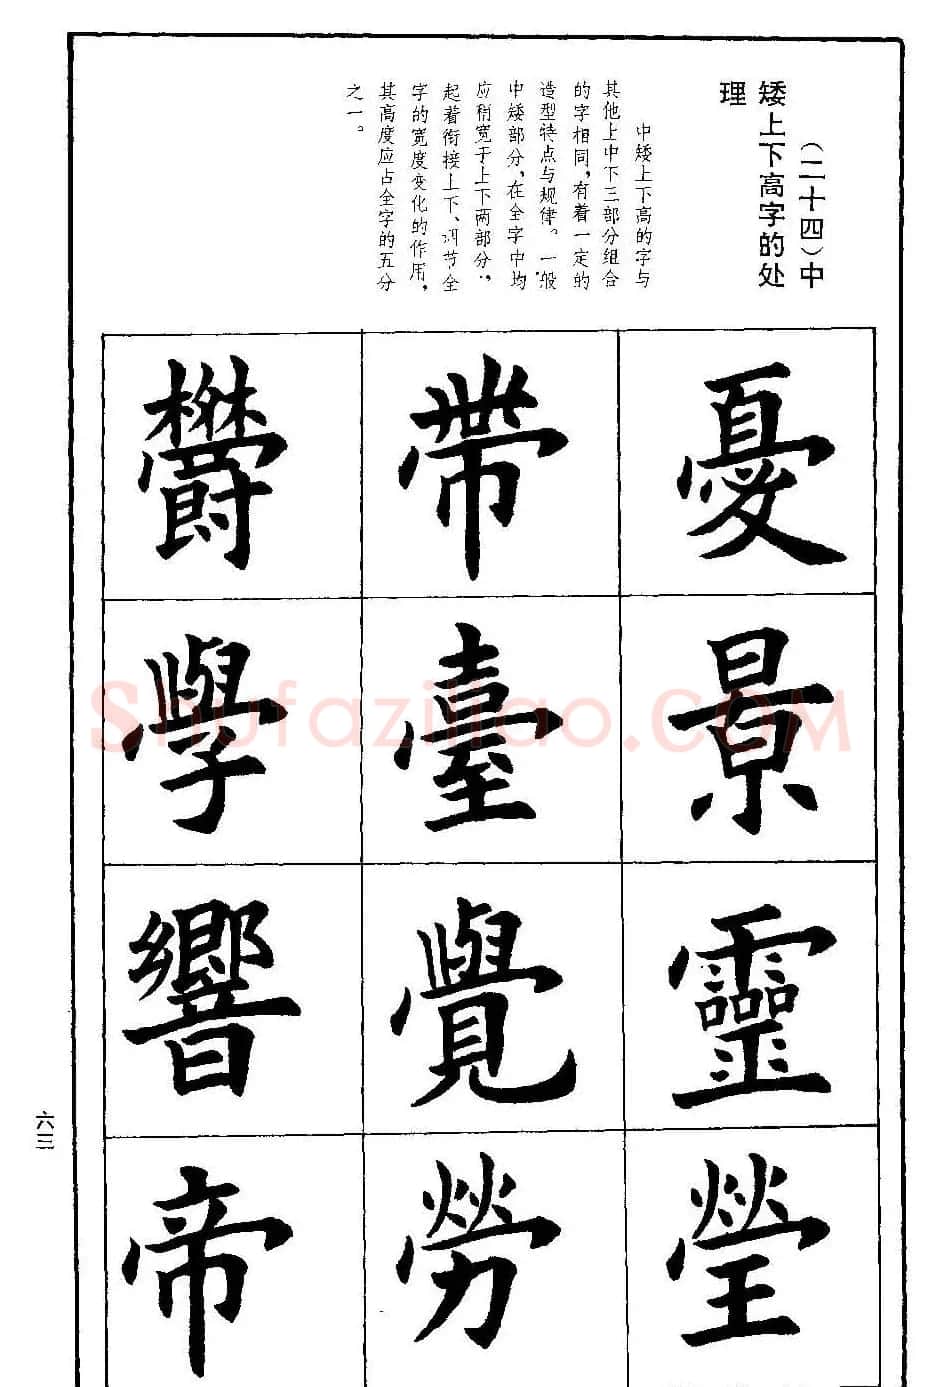 （二十四）中
矮上下高字的处
理
中矮上下高的字与
其他上中下三部分组合
的字相同，有着一定的
造型特点与规律。一般
中矮部分，在全字中均
应稍宽于上下两部分；
起着衔接上下、调节全
字的宽度变化的作用，
其高度应占全字的五分
之一。
憂
景
靈
瑩
帶
臺
覺
勞
學
響
帝
六三
Shufaziliao.COM